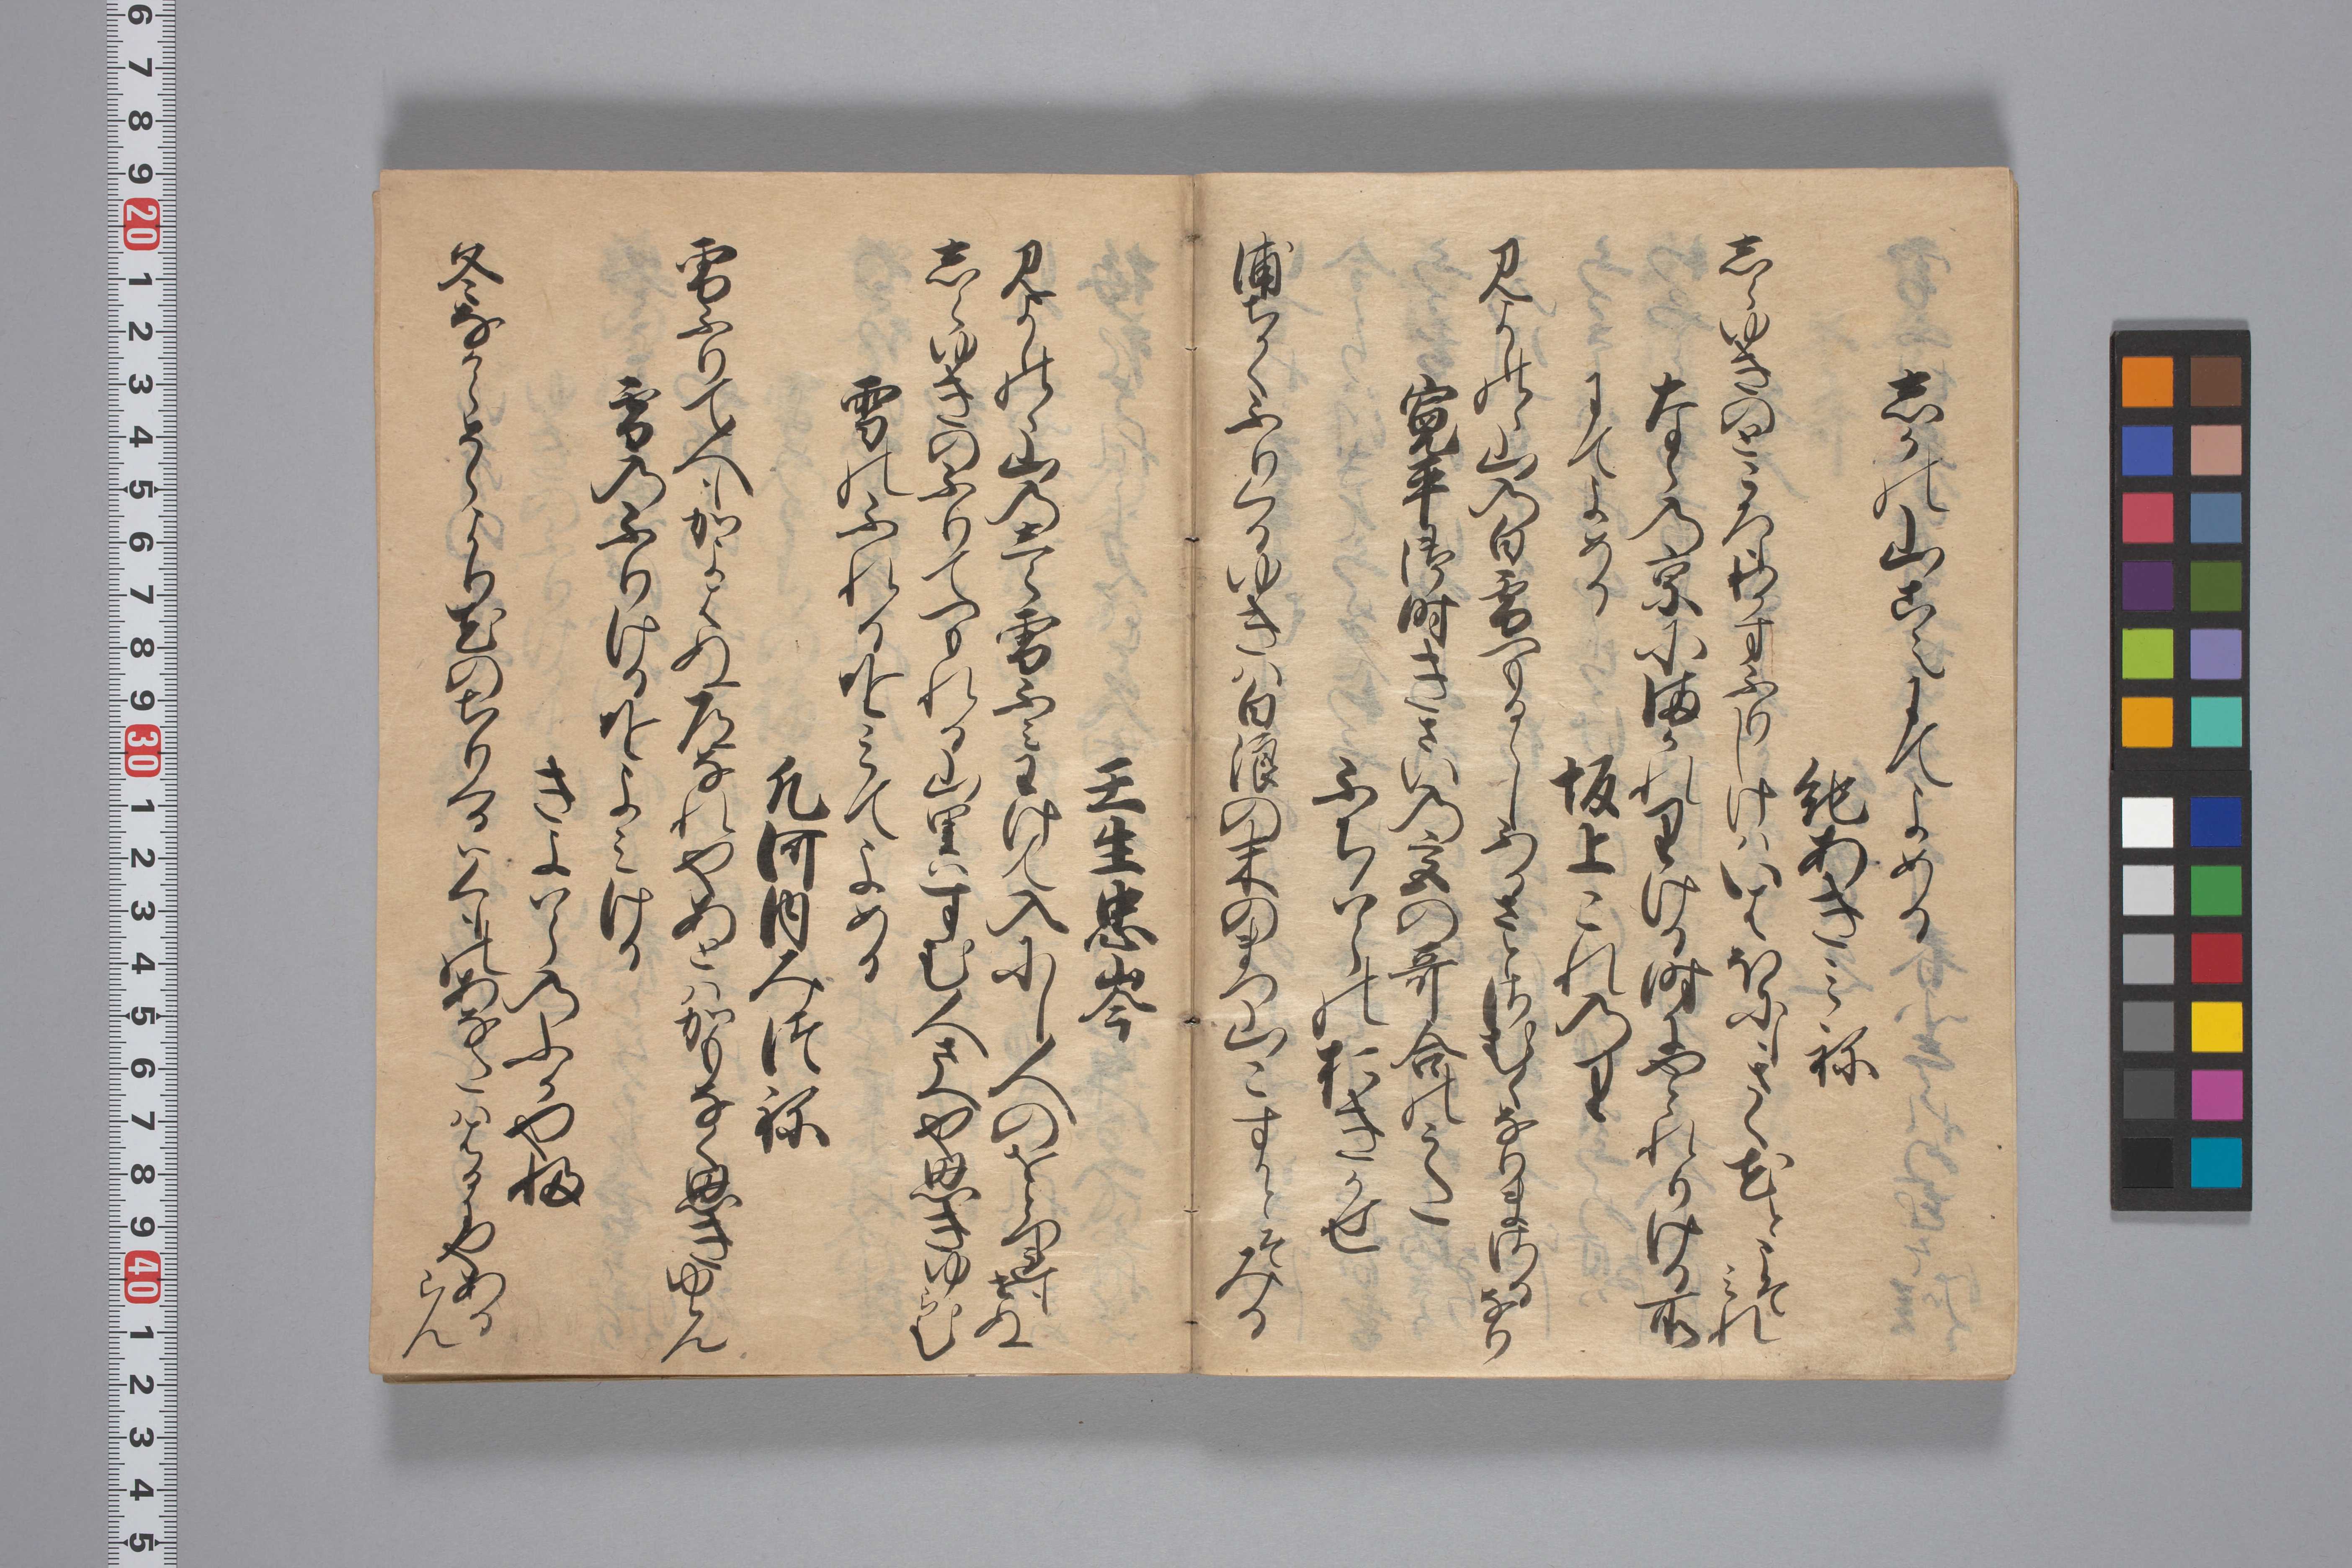 志かの山こえにてよめる
紀あきみね
志らゆきのところもわかすふりしけはいはほにもさく花とこそみれ
なら乃京にまかれりける時にやとれりける所
にてよめる
坂上これのり
みよしのゝ山乃白雪つもるらしふるさとさむくなりまさるなり
寛平御時きさいの宮の哥合のうた
ふちはらのおきかせ
浦ちかくふりくるゆきは白浪の末のまつ山こすかとそみる
壬生忠岑
みよしのゝ山乃しら雪ふみわけて入にし人のをとつれもせぬ
志らゆきのふりてつもれる山里はすむ人さへや思きゆらむ
雪のふれるをみてよめる
凡河内みつね
雪ふりて人もかよはぬ道なれやあとはかもなく思きゆらん
雪乃ふりけるをよみける
きよはらのふかやふ
冬なからそらより花のちりくるは雲のあなたは春にやあるらん